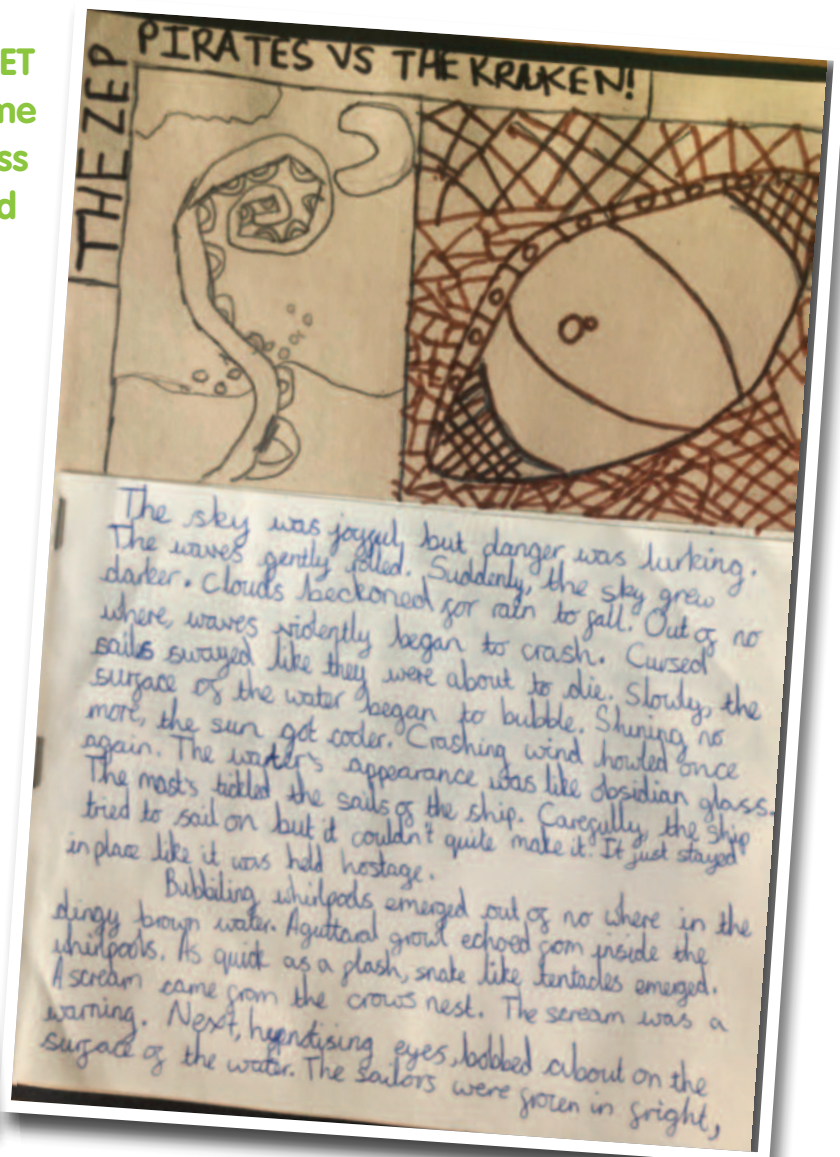 ET
me
ss
d
THE ZEP
PIRATES VS THE KRAKEN!
The sky was joyful, but danger was lurking.
The waves gently rolled. Suddenly, the sky grew
darker. Clouds beckoned for rain to fall. Out of no
where, waves violently began to crash. Cursed
sails swayed like they were about to die. Slowly, the
surface of the water began to bubble. Shining no
more, the sun got coder. Crashing wind howled once
again. The warter's appearance was like obsidian glass.
The mast's tickled the sails of the ship. Carefully, the ship
tried to sail on but it couldn't quite make it. It just stayed
in place like it was held hostage.
Bubbiling whirlpools emerged out of no where in the
dingy brown water. A guttaral growl echoed from inside the
whirlpools. As quick as a flash, snake like tentacles emerged.
A scream came from the crows nest. The scream was a
warning. Next, hypnotising eyes, bobbed about on the
surface of the water. The sailors were frozen in fright,